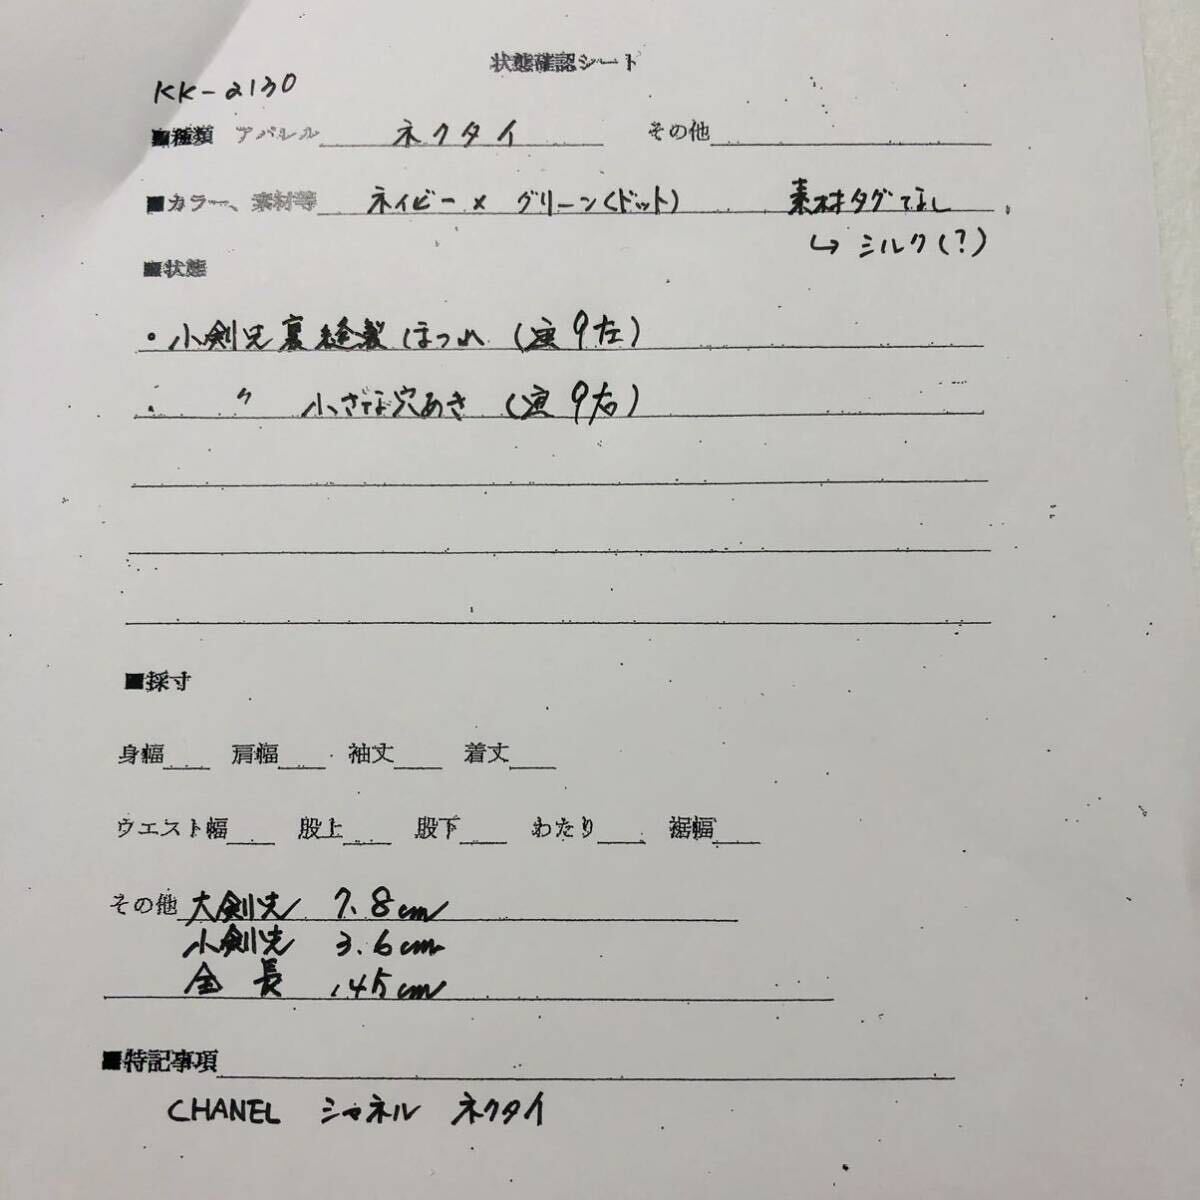 状態確認シート
KK-2130
■種類 アパレル ネクタイ その他
■カラー、素材等 ネイビー×グリーン(ドット) 素材タグなし
↳ シルク(?)
■状態
・小剣先裏縫製ほつれ (画9左)
・ 〃 小さな穴あき (画9右)
■採寸
身幅 肩幅 袖丈 着丈
ウエスト幅 股上 股下 わたり 裾幅
その他 大剣先 7.8cm
小剣先 3.6cm
全長 145cm
■特記事項
CHANEL シャネル ネクタイ